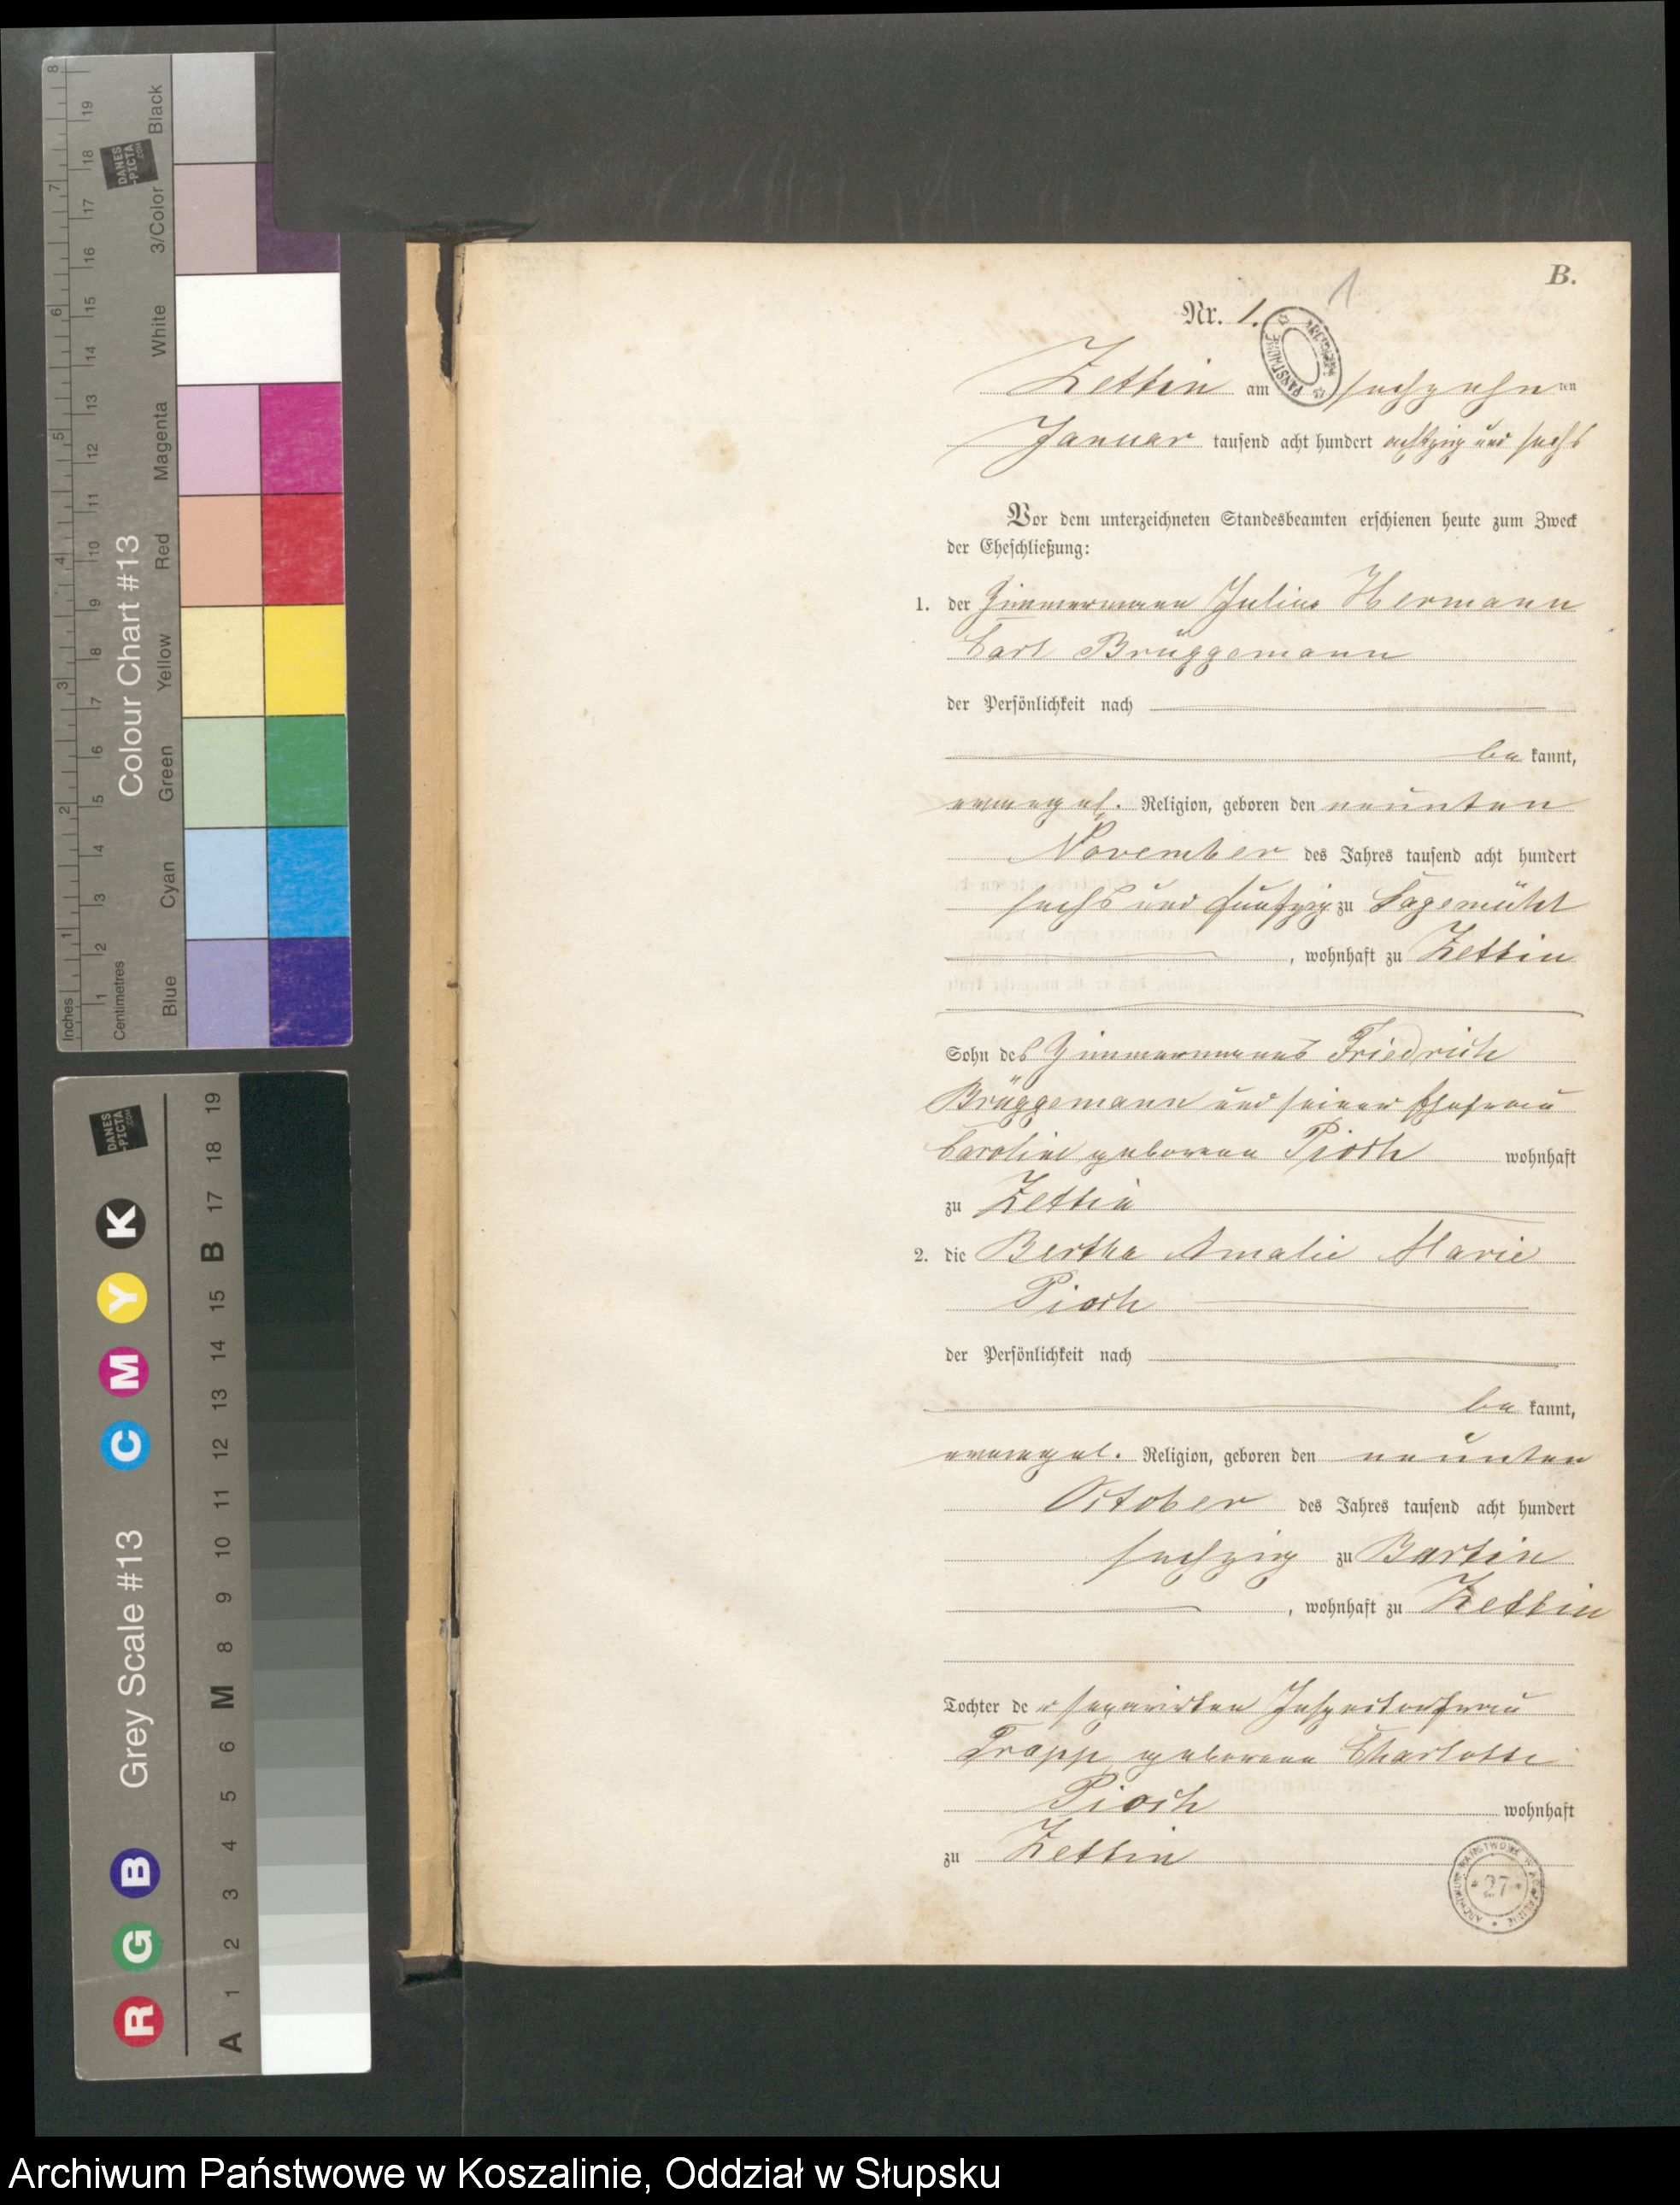 B.
1
Nr. 1.
Zettin am sechszehn ten
Januar tausend acht hundert achtzig und sechs
Vor dem unterzeichneten Standesbeamten erschienen heute zum Zweck
der Eheschließung:
1. der Zimmermann Julius Hermann
Carl Brüggemann
der Persönlichkeit nach
be kannt,
evangel. Religion, geboren den neunten
November des Jahres tausend acht hundert
sechs und fünfzig zu Sagemühl
, wohnhaft zu Zettin
Sohn des Zimmermanns Friedrich
Brüggemann und seiner Ehefrau
Caroline geborene Pioch wohnhaft
zu Zettin
2. die Bertha Amalie Marie
Pioch
der Persönlichkeit nach
be kannt,
evangel. Religion, geboren den neunten
October des Jahres tausend acht hundert
sechzig zu Bartin
, wohnhaft zu Zettin
Tochter der separirten Inspectorfrau
Trapp geborene Charlotte
Pioch wohnhaft
zu Zettin
ARCHIWUM PAŃSTWOWE
ARCHIWUM PAŃSTWOWE W KOSZALINIE
27
Inches 1 2 3 4 5 6 7 8
Centimetres 1 2 3 4 5 6 7 8 9 10 11 12 13 14 15 16 17 18 19
Colour Chart #13
Blue Cyan Green Yellow Red Magenta White 3/Color Black
DANES
-PICTA
.COM
Grey Scale #13
R G B C M Y K
A 1 2 3 4 5 6 M 8 9 10 11 12 13 14 15 B 17 18 19
DANES
-PICTA
.COM
Archiwum Państwowe w Koszalinie, Oddział w Słupsku